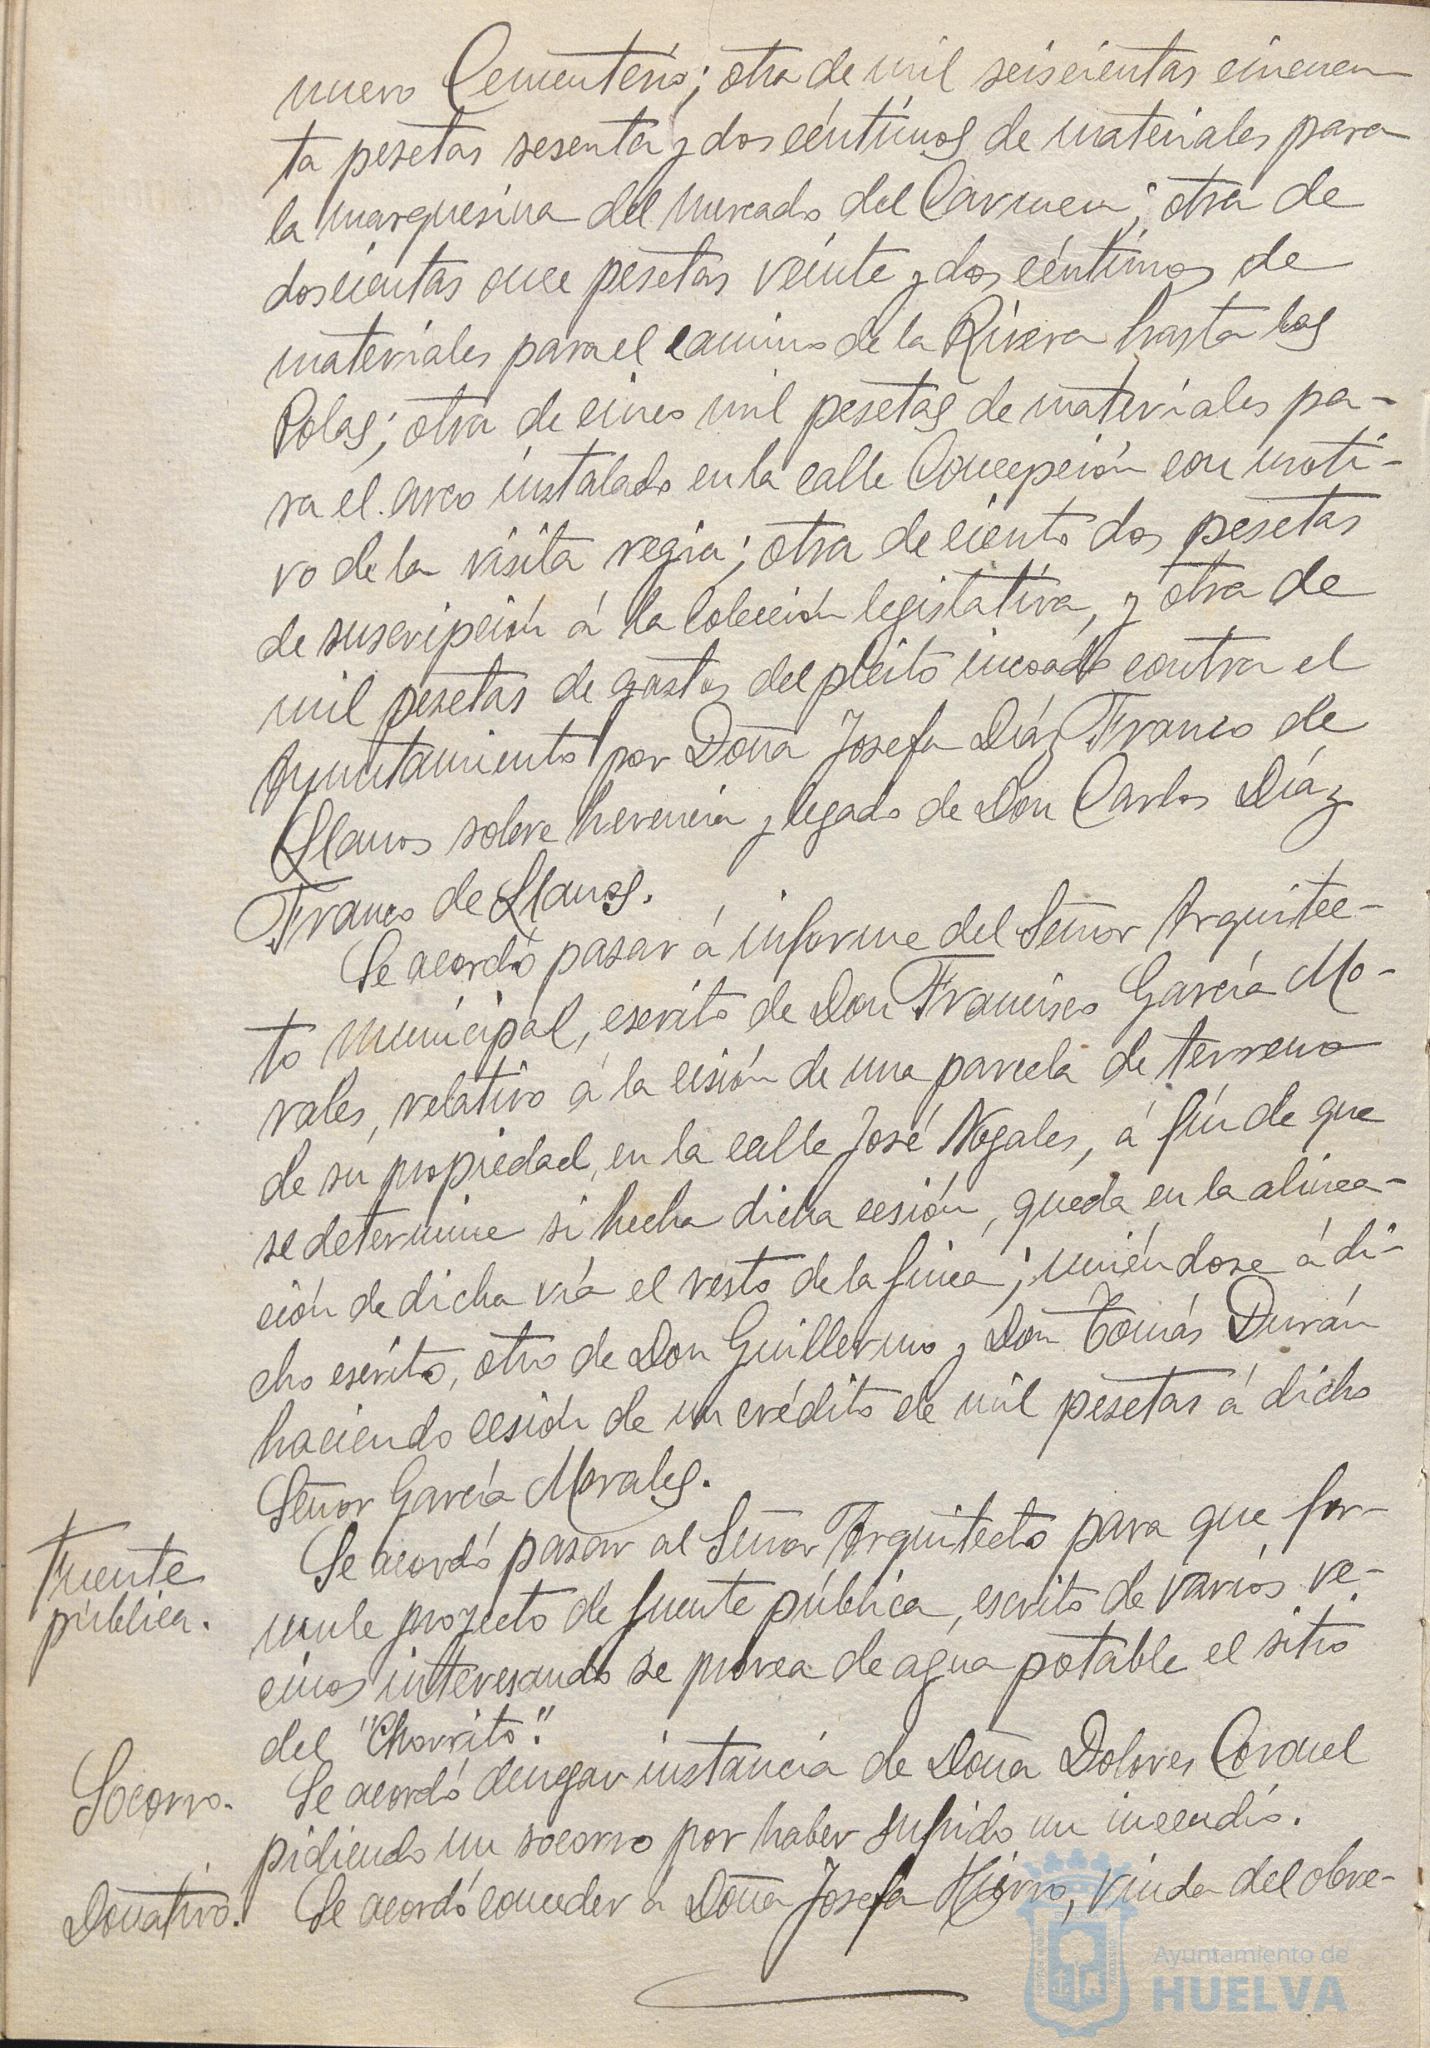 nuevo Cementerio; otra de mil seiscientas cincuen
ta pesetas sesenta y dos céntimos de materiales para
la marquesina del Mercado del Carmen; otra de
doscientas once pesetas veinte y dos céntimos de
materiales para el camino de la Rivera hasta las
Colas; otra de cinco mil pesetas de materiales pa-
ra el arco instalado en la calle Concepción con moti-
vo de la visita regia; otra de ciento dos pesetas
de suscripción á la colección legislativa, y otra de
mil pesetas de gastos del pleito incoado contra el
Ayuntamiento por Doña Josefa Díaz Franco de
Llanos sobre herencia y legado de Don Carlos Díaz
Franco de Llanos.
Se acordó pasar á informe del Señor Arquitec-
to municipal, escrito de Don Francisco García Mo-
rales, relativo á la cesión de una parcela de terreno
de su propiedad, en la calle José Nogales, á fin de que
se determine si hecha dicha cesión, queda en la alinea-
ción de dicha vía el resto de la finca; uniéndose á di-
cho escrito, otro de Don Guillermo y Don Tomás Durán
haciendo cesión de un crédito de mil pesetas á dicho
Señor García Morales.
Fuente
pública.
Se acordó pasar al Señor Arquitecto para que for-
mule proyecto de fuente pública, escrito de varios ve-
cinos interesando se provea de agua potable el sitio
del "Chorrito".
Socorro.
Se acordó denegar instancia de Doña Dolores Coronel
pidiendo un socorro por haber sufrido un incendio.
Donativo.
Se acordó conceder á Doña Josefa Hierro, viuda del obre-
Ayuntamiento de
HUELVA